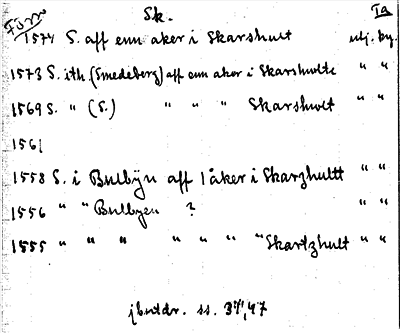 Sk. Ia
Form
1574 S. aff enn aker i Skarshult utj. by.
1573 S. ith (Smedeberg) aff enn aker i Skarshulte " "
1569 S. " (S.) " " " Skarshwlt " "
1561
1558 S. i Bulbÿn aff 1 åker i Skarzhultt " "
1556 " " Bulbyen ? " "
1555 " " " " " " " Skartzhult " "
jbutdr. ss. 37, 47